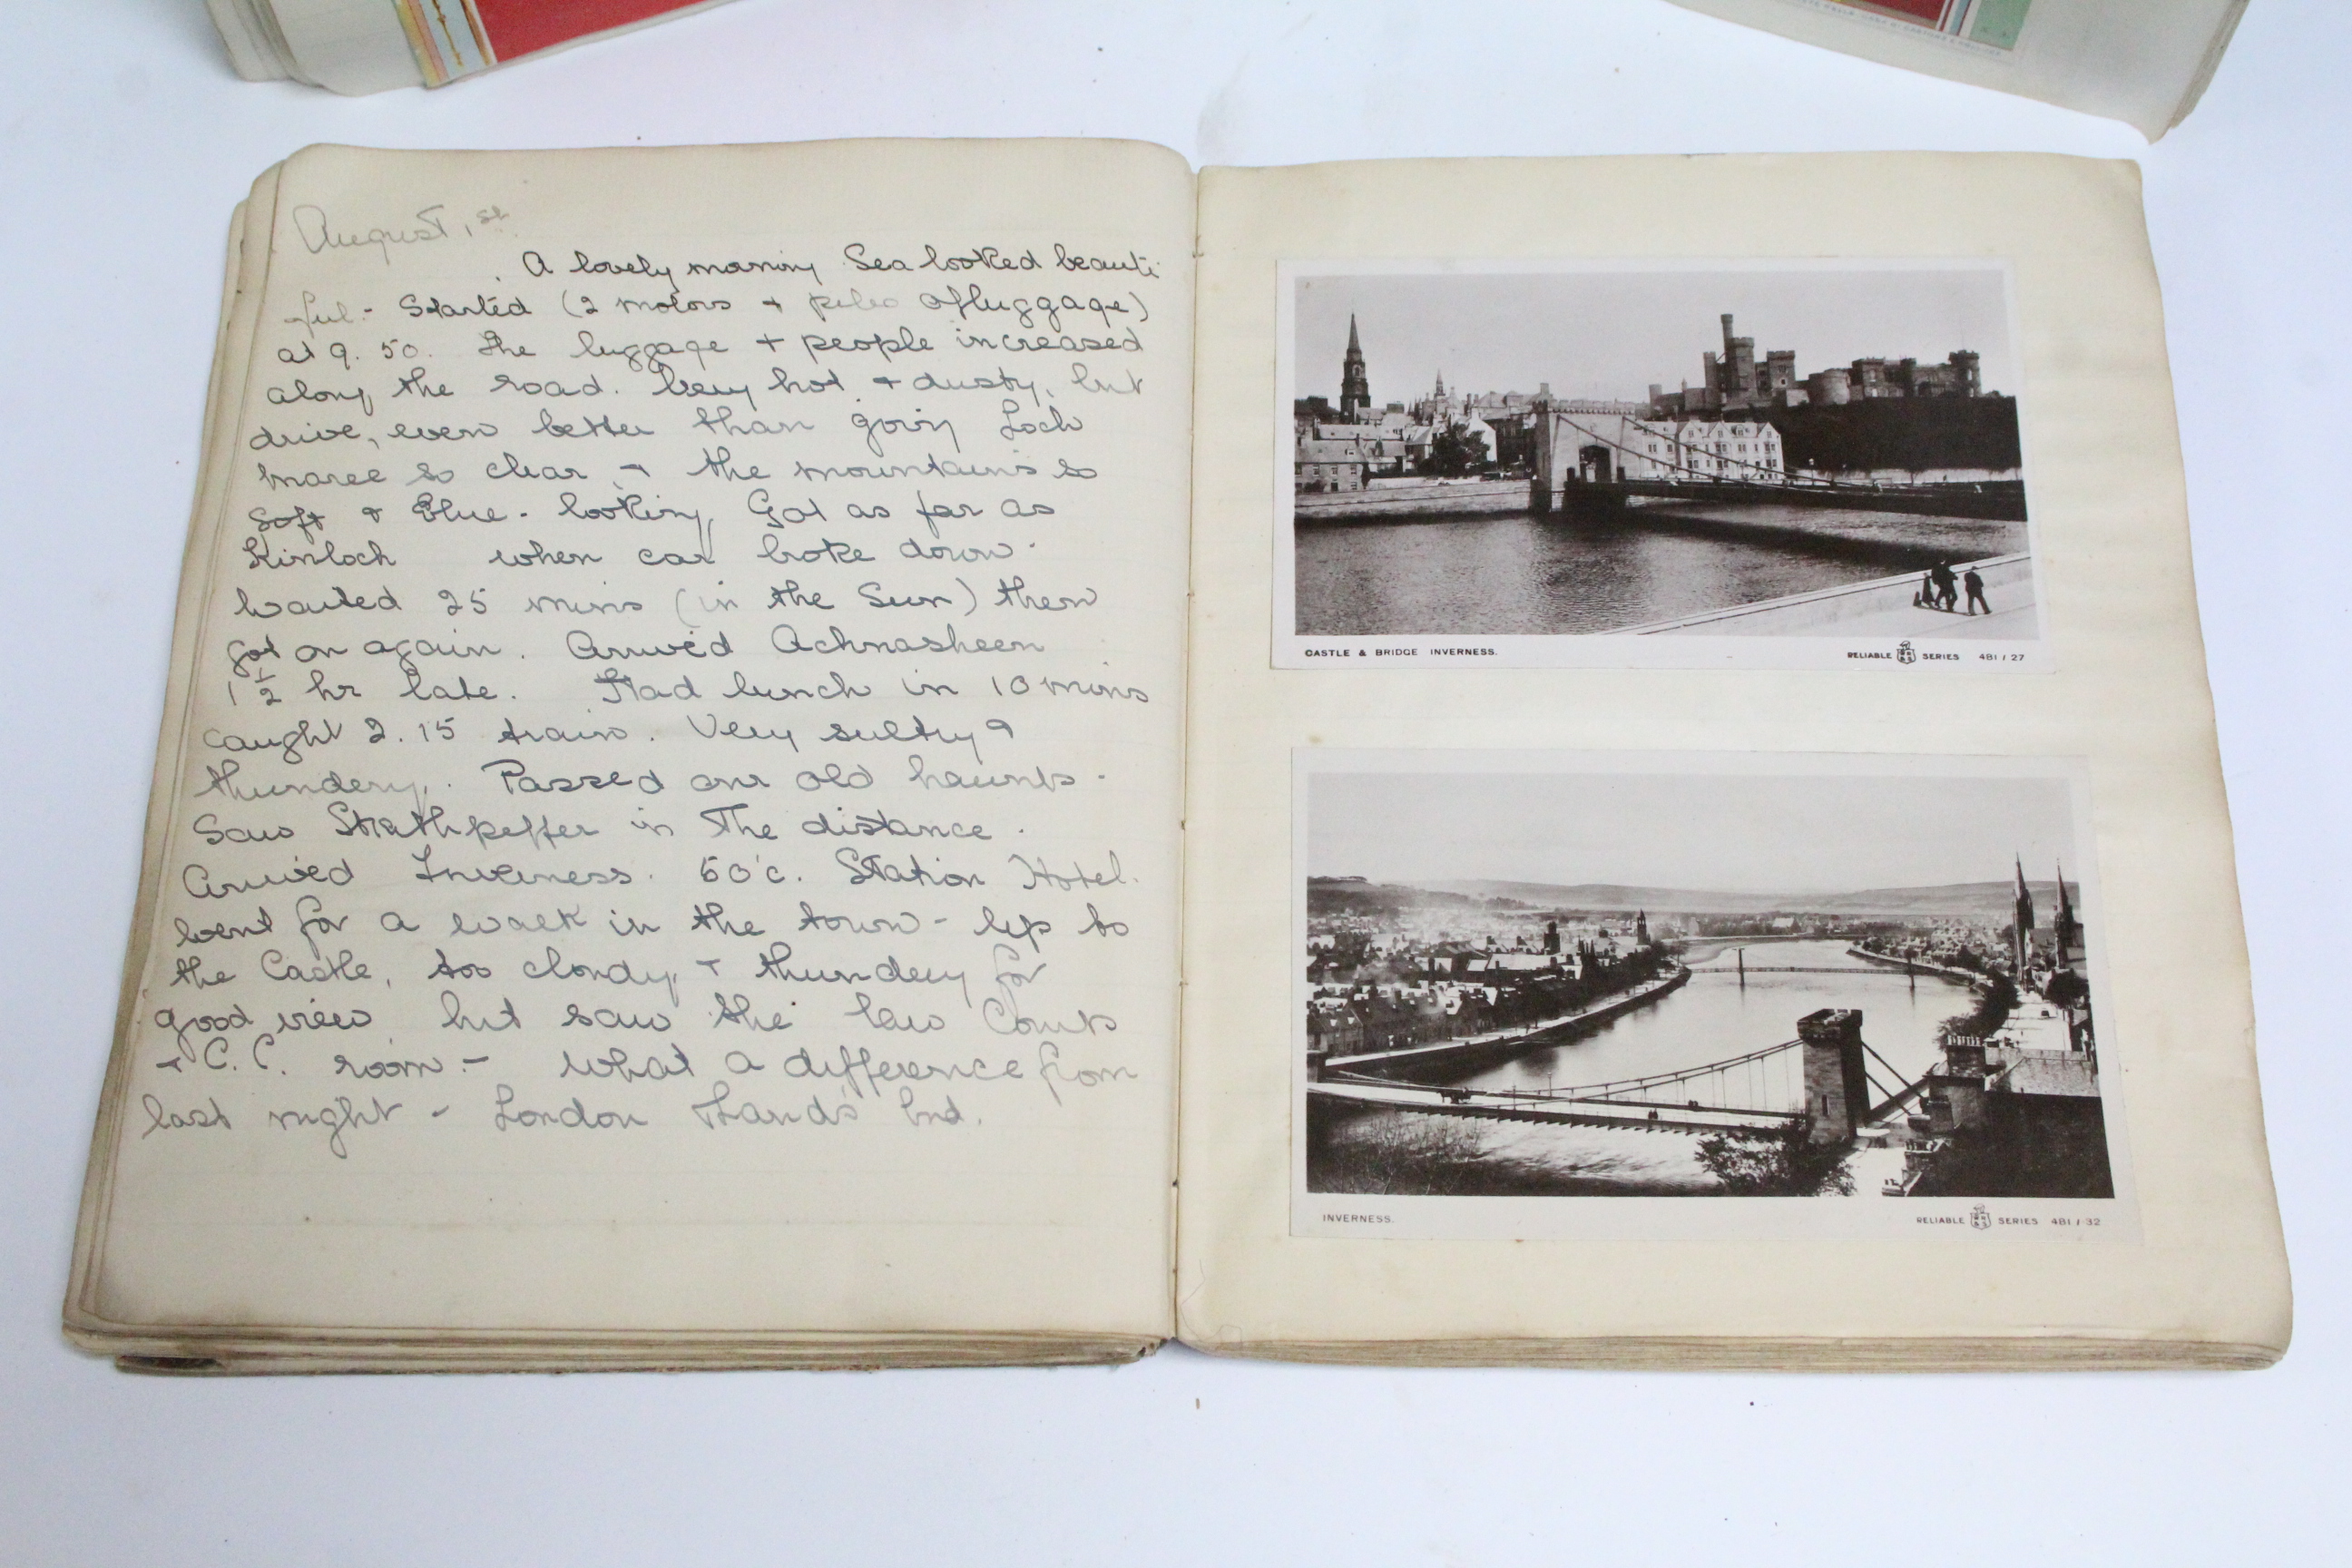 August 1st.
A lovely morning Sea looked beauti
ful - Started (2 motors + piles of luggage)
at 9. 50. The luggage + people increased
along the road. Very hot + dusty, but
drive, even better than going Loch
Maree so clear + the mountains so
Soft + Blue - looking, Got as far as
Kinloch when car broke down -
Waited 25 mins (in the Sun) then
got on again. Arrived Achnasheen
1 1/2 hr late. Had lunch in 10 mins
caught 2.15 train. Very sultry +
thundery. Passed our old haunts -
Saw Strathpeffer in The distance.
Arrived Inverness. Station Hotel.
Went for a walk in the town - Up to
the Castle, too cloudy + thundery for
good view but saw the Law Courts
+ C.C. room - what a difference from
last night - London
CASTLE & BRIDGE INVERNESS.
RELIABLE SERIES 481 / 27
INVERNESS.
RELIABLE SERIES 481 / 32